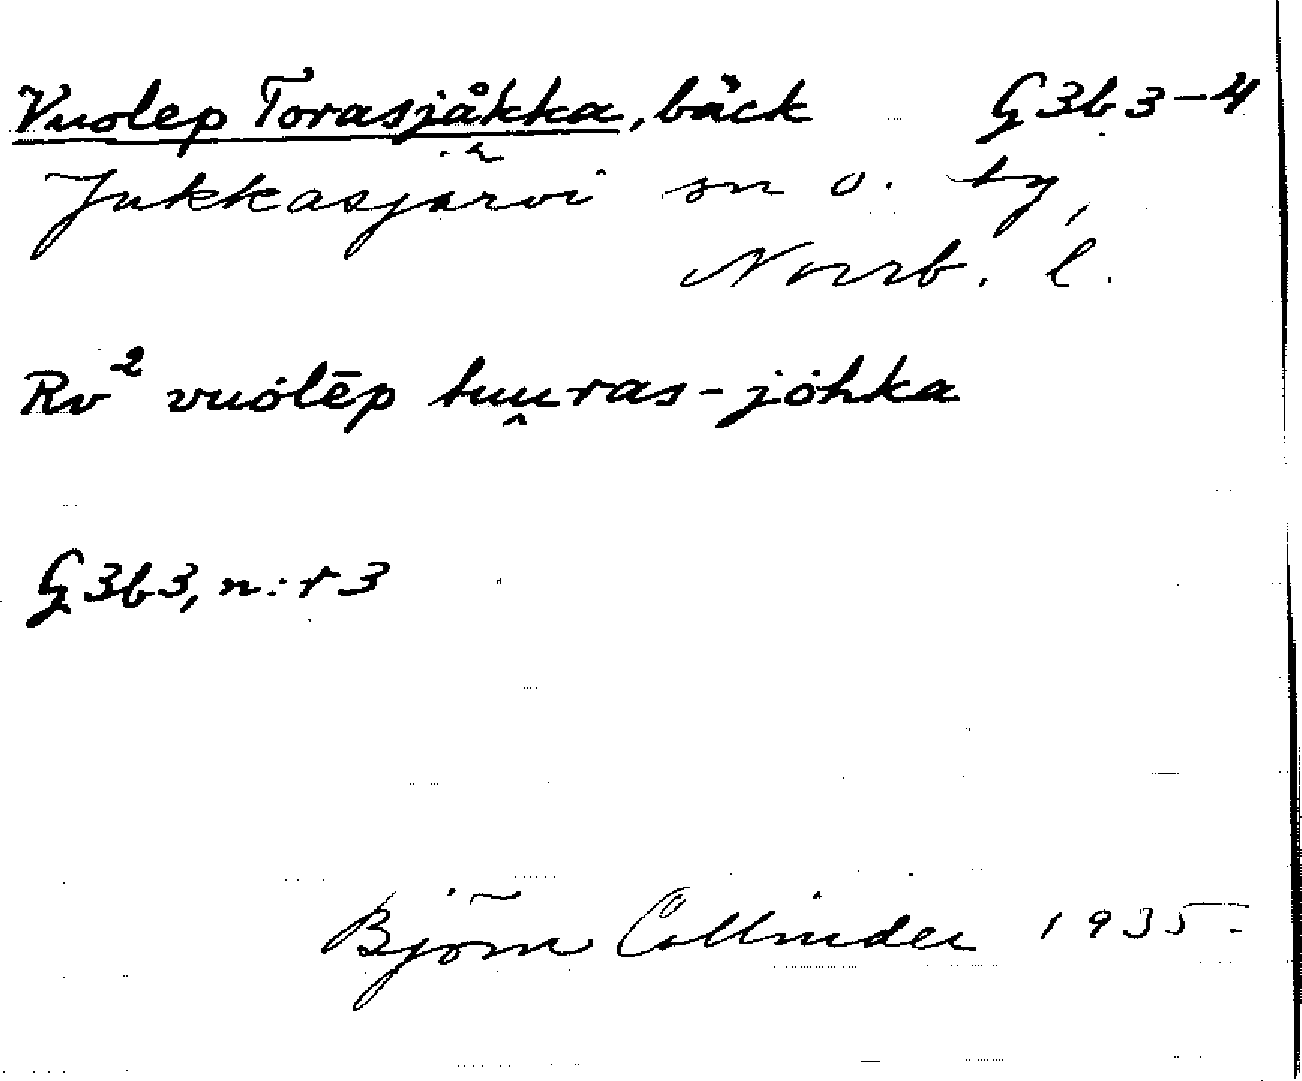 Vuolep Torasjåkka, bäck G3b3-4
Jukkasjärvi sn o. tg,
Norrb. l.
Rv² vuolēp tuu̯ras-jȯhka
G3b3, n:r 3
Björn Collinder 1935